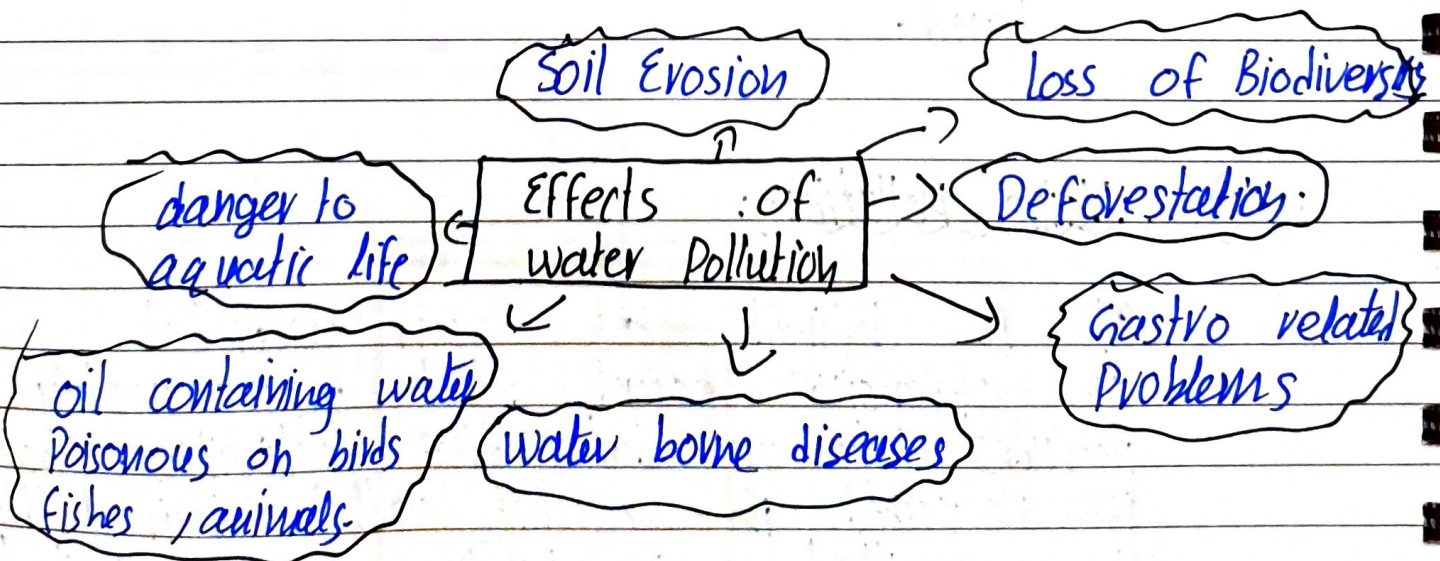 Soil Erosion
Loss of Biodiversity
Effects of
water Pollution
danger to
aquatic life
Deforestation.
Gastro related
Problems
oil containing water
Poisonous on birds
fishes, animals.
water borne diseases